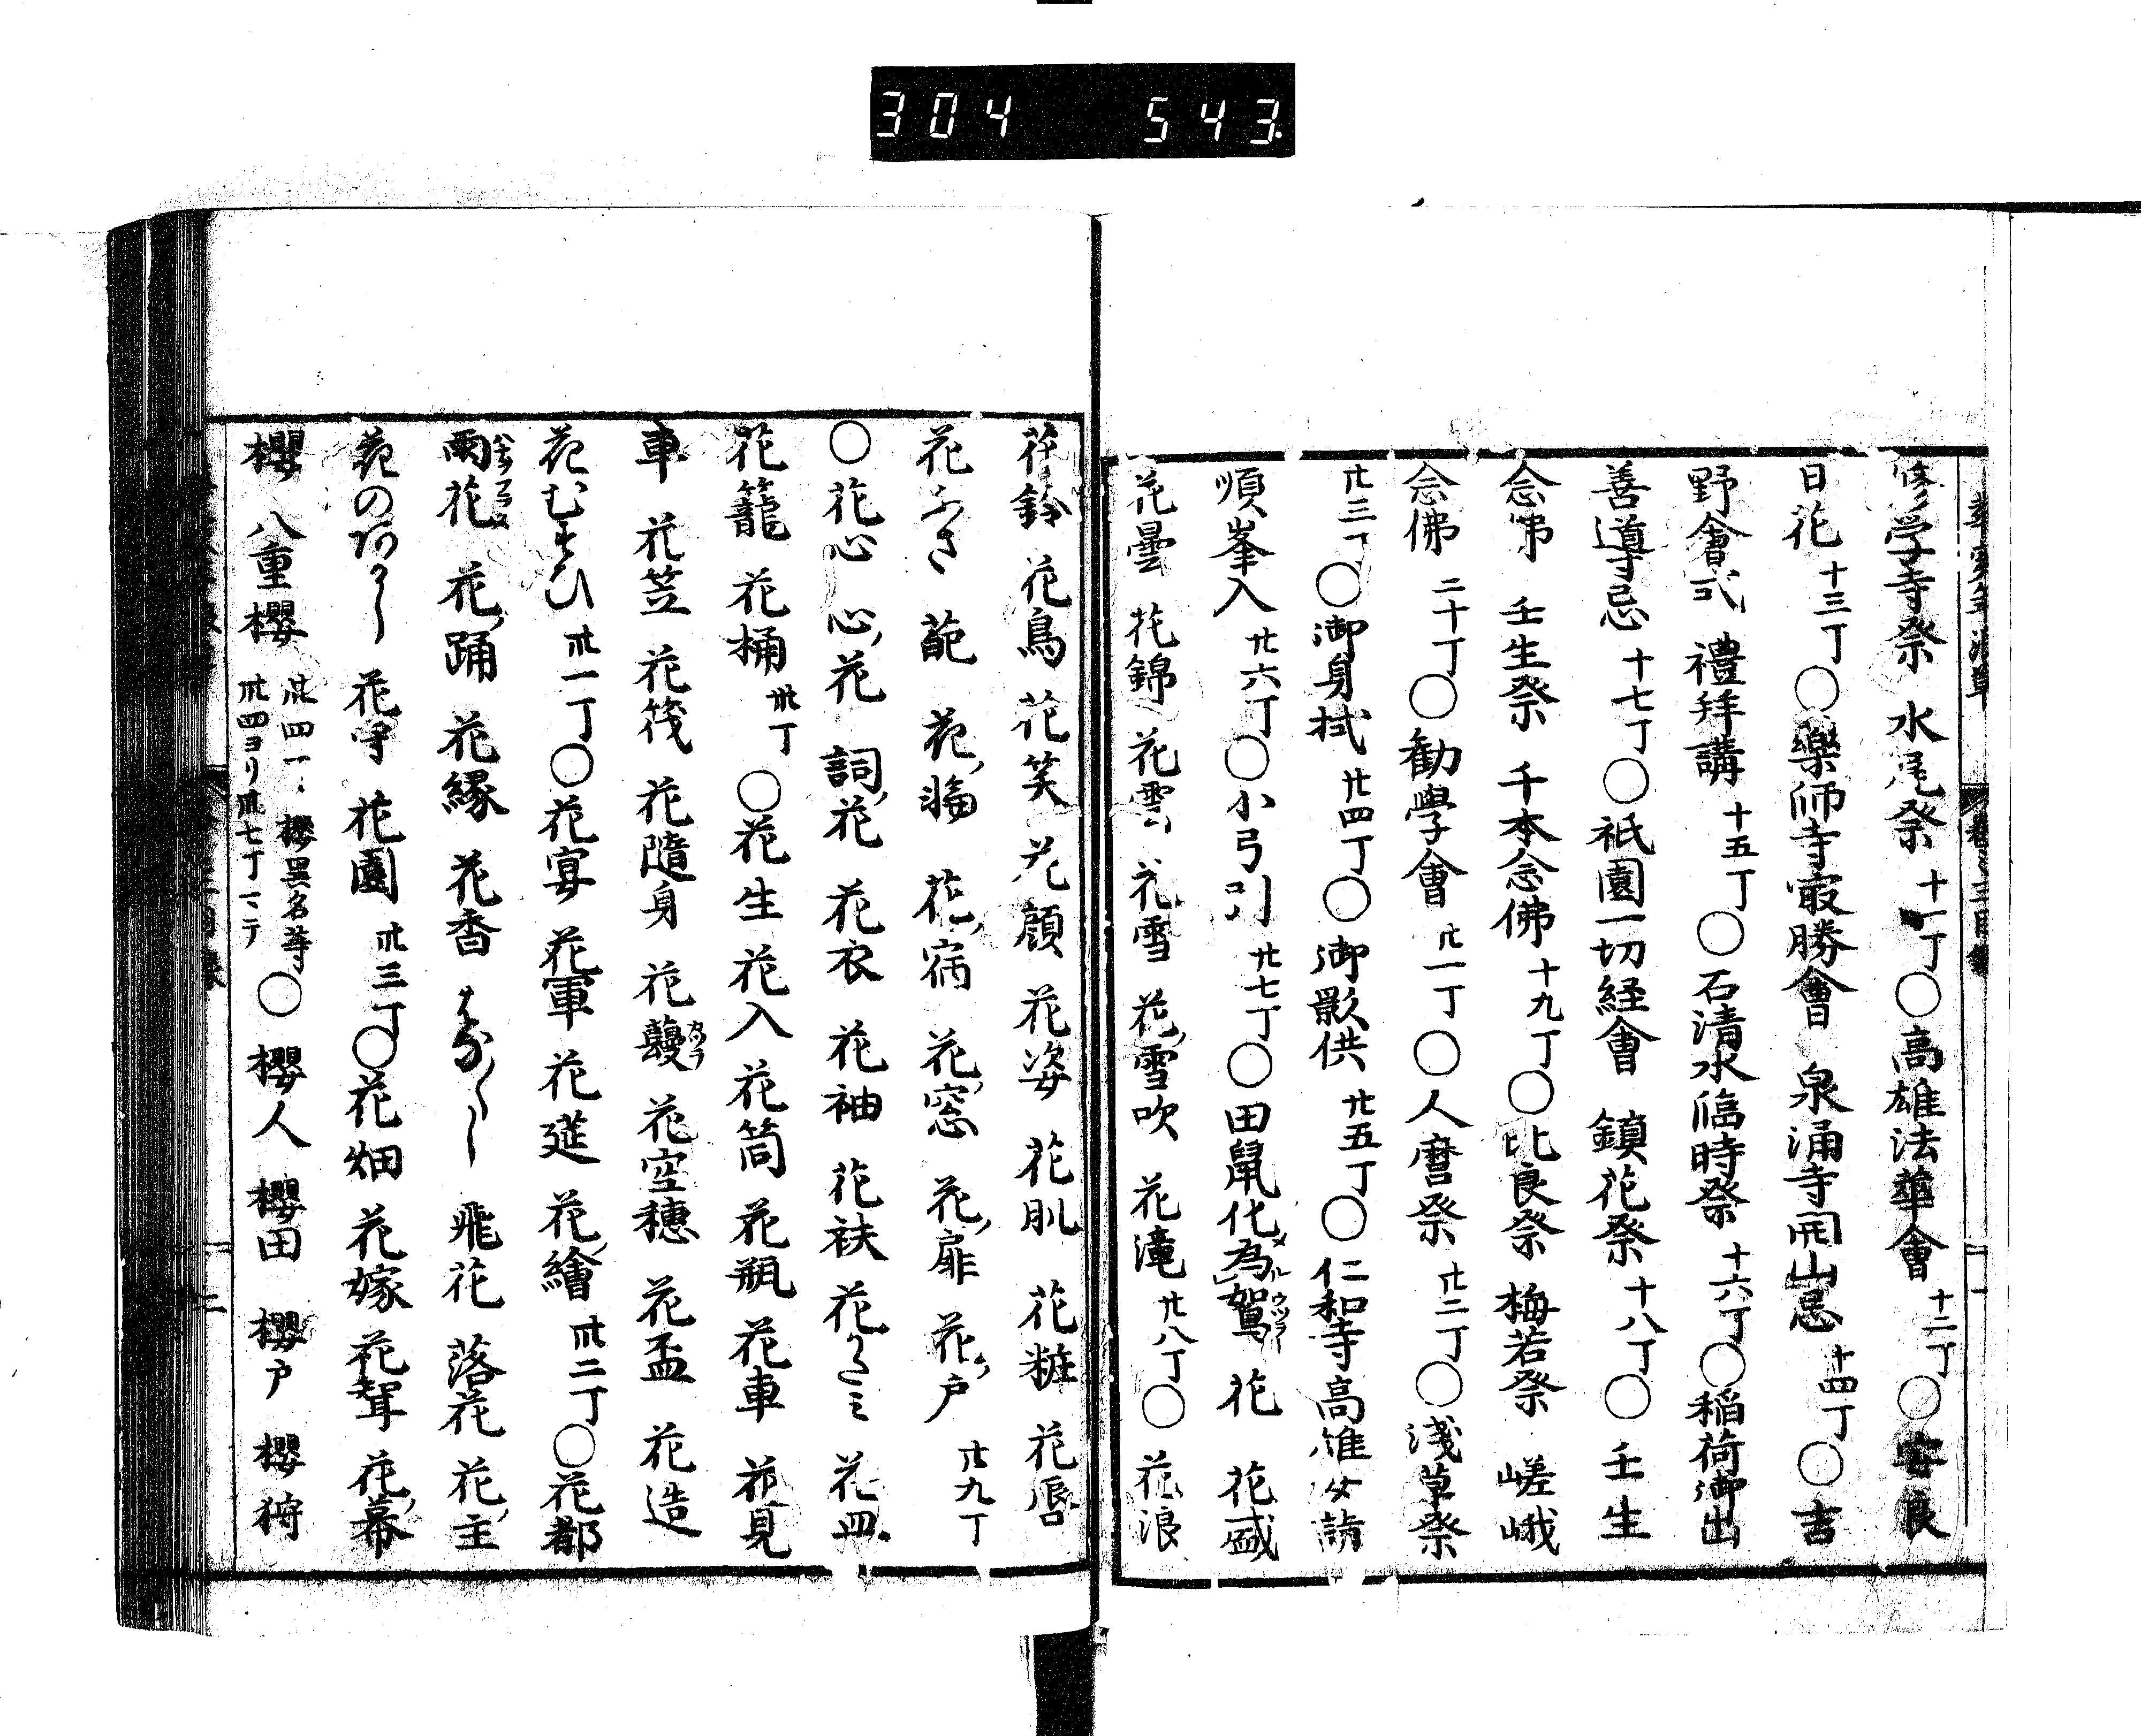 304 543
修学寺祭 水尾祭 十一丁〇高雄法華會 十二丁〇安良
日花 十三丁〇藥師寺最勝會 泉涌寺開山忌 十四丁〇吉
野會式 禮拜講 十五丁〇石清水臨時祭 十六丁〇稲荷御出
善導忌 十七丁〇祇園一切経會 鎮花祭 十八丁〇壬生
念佛 壬生祭 千本念佛 十九丁〇比良祭 梅若祭 嵯峨
念佛 二十丁〇勧學會 廿一丁〇人麿祭 廿二丁〇淺草祭
廿三丁〇御身拭 廿四丁〇御影供 廿五丁〇仁和寺高雄女詣
順峯入 廿六丁〇小弓引 廿七丁〇田鼠化為鴽 花 花盛
花曇 花錦 花雲 花雪 花雪吹 花滝 廿八丁〇花浪
花鈴 花鳥 花笑 花顔 花姿 花肌 花粧 花唇
花ふさ 葩 花 花宿 花窓 花扉 花戸 廿九丁
〇花心 心花 詞花 花衣 花袖 花袂 花 花皿
花籠 花桶 卅丁〇花生 花入 花筒 花瓶 花車 花見
車 花笠 花筏 花隨身 花鬘カツラ 花空穂 花盃 花造
花むすひ 卅一丁〇花宴 花軍 花莚 花繪 卅二丁〇花都
雨花 花踊 花縁 花香 飛花 落花 花主
花の 花守 花園 卅三丁〇花畑 花嫁 花聟 花幕
櫻 八重櫻 卅四丁 櫻異名等 卅四ヨリ卅七丁マテ〇櫻人 櫻田 櫻戸 櫻狩